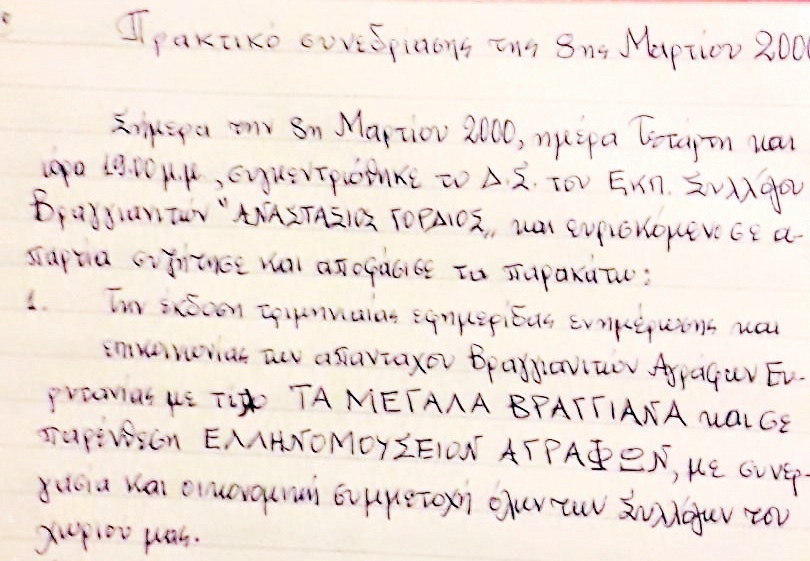 Πρακτικό συνεδρίασης της 8ης Μαρτίου 2000
Σήμερα την 8η Μαρτίου 2000, ημέρα Τετάρτη και
ώρα 19.00 μ.μ., συγκεντρώθηκε το Δ.Σ. του Εκπ. Συλλόγου
Βραγγιανιτών "ΑΝΑΣΤΑΣΙΟΣ ΓΟΡΔΙΟΣ" και ευρισκόμενο σε α-
παρτία συζήτησε και αποφάσισε τα παρακάτω:
1. Την έκδοση τριμηνιαίας εφημερίδας ενημέρωσης και
επικοινωνίας των απανταχού Βραγγιανιτών Αγράφων Ευ-
ρυτανίας με τίτλο ΤΑ ΜΕΓΑΛΑ ΒΡΑΓΓΙΑΝΑ και σε
παρένθεση ΕΛΛΗΝΟΜΟΥΣΕΙΟΝ ΑΓΡΑΦΩΝ, με συνερ-
γασία και οικονομική συμμετοχή όλων των Συλλόγων του
χωριού μας.